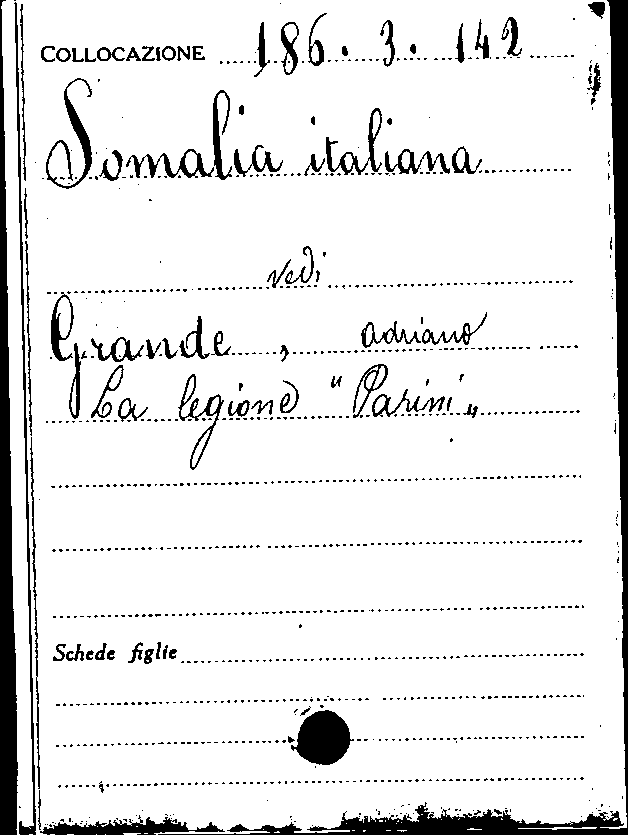 COLLOCAZIONE 186. 3. 142
Somalia italiana
vedi
Grande, Adriano
La legione "Parini"
Schede figlie